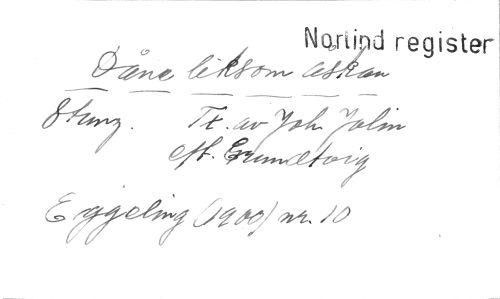 Norlind register
Dåne liksom åskan
8 tung. Tx. av Joh. Jolin
eft. Grundtvig
Eggeling (1900) nr. 10